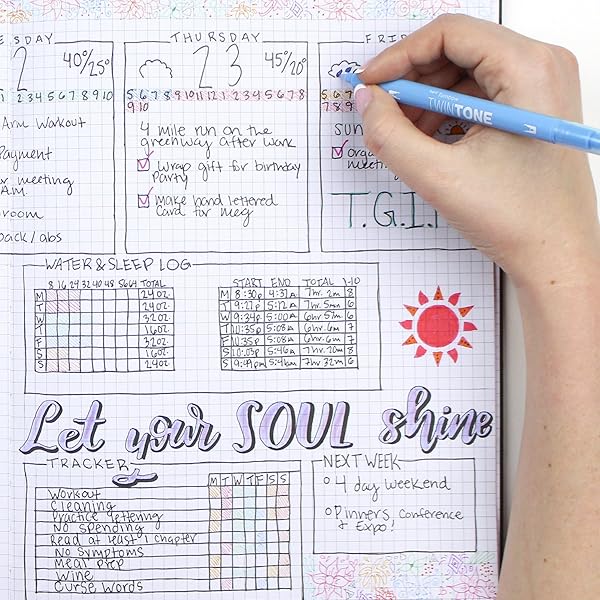 ESDAY
2
40°/25°
1 2 3 4 5 6 7 8 9 10
Arm Workout
Payment
meeting
Am.
room
back/abs
THURSDAY
23
45°/20°
5 6 7 8 9 10 11 12 1 2 3 4 5 6 7 8
9 10
4 mile run on the
greenway after work
Wrap gift for birthday
party
Make hand lettered
Card for meg
FRID
5 6
7 8
SUN
orga
meeting
T.G.I.F
Tombow TWINTONE
WATER & SLEEP LOG
8 16 24 32 40 48 56 64 TOTAL
M 24oz.
T 24oz.
W 32oz.
T 16oz.
F 32oz.
S 16oz.
S 24oz
START END TOTAL 1-10
M 8:30p 4:32A 7hr. 2m 8
T 9:27p 5:12A 7hr. 5min 6
W 9:34p 5:00A 6hr. 57min 6
T 10:35p 5:08A 6hr. 6m 7
F 10:35p 5:08A 6hr. 6m 7
S 10:05p 5:46A 7hr. 20m 8
S 9:49pm 5:46m 7hr 32m 6
Let your SOUL shine
TRACKER
M T W T F S S
Workout
Cleaning
Practice lettering
No Spending
Read at least 1 chapter
No Symptoms
Meal prep
Wine
Curse Words
NEXT WEEK
4 day weekend
Pinners Conference
& Expo!